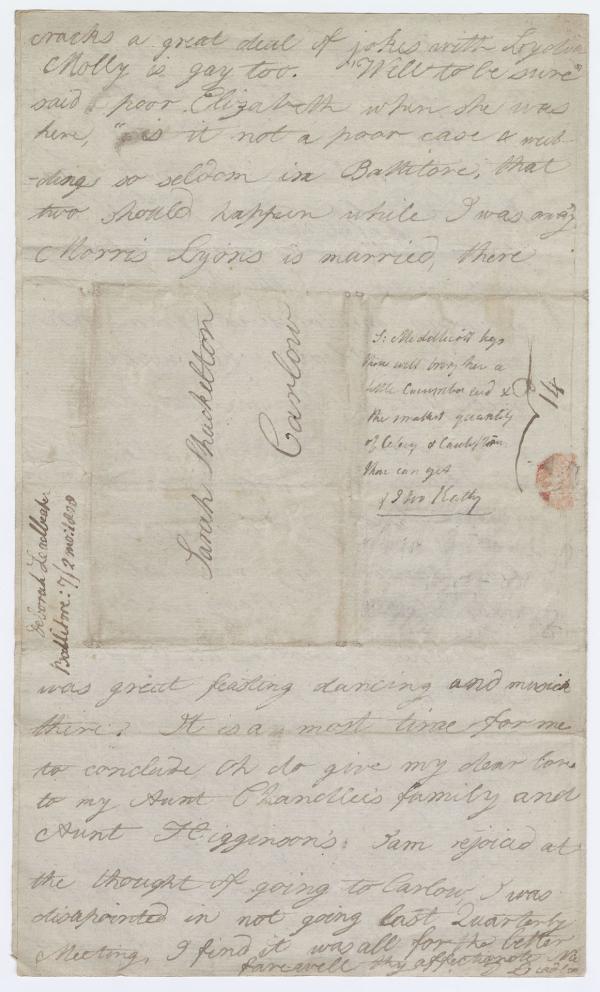 cracks a great deal of jokes with Lydia
Molly is gay too. "Well to be sure"
said poor Elizabeth when she was
here, "is it not a poor case & wed-
-dings so seldom in Ballitore, that
two should happen while I was away
Morris Lyons is married, there
Sarah Shackelton
Carlow
S: Medlicott begs
thou will bring her a
little Cucumber and &
the smallest quantity
of Celery &
thou can get
14
Deborah Leadbeater
Ballitore: 7/2 mo:
was great feasting dancing and musick
there. It is a most time for me
to conclude Oh do give my dear love
to my Aunt Chandlee's family and
Aunt Higginson's. I am rejoiced at
the thought of going to Carlow, I was
disapointed in not going last Quarterly
Meeting, I find it was all for the better
farewell thy affectionate